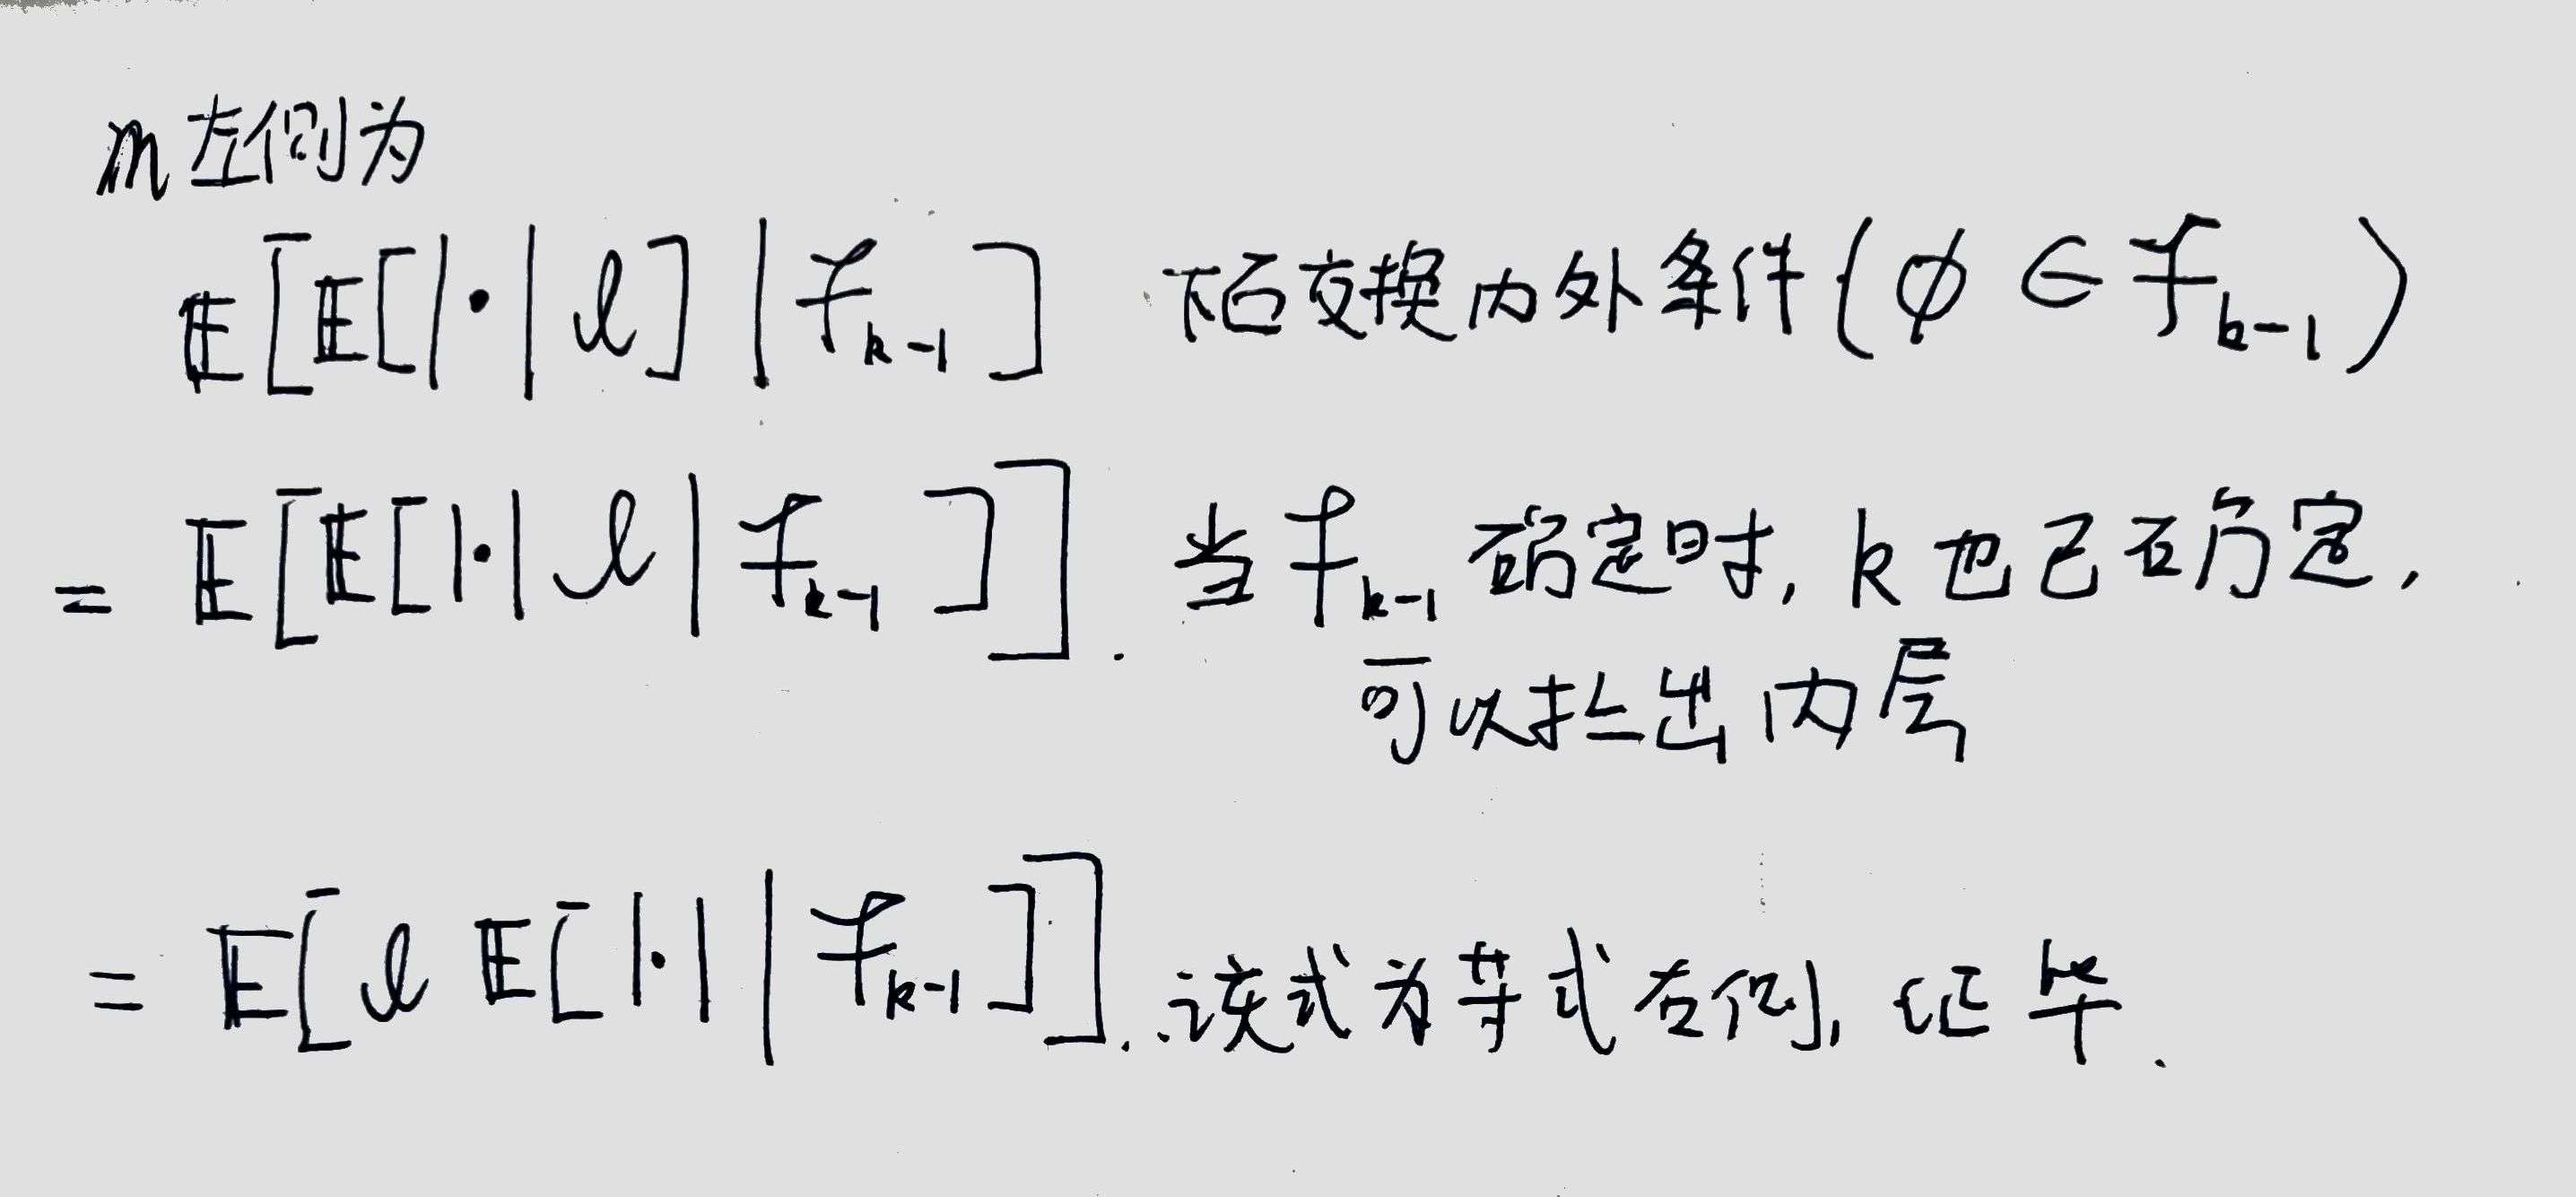 m左侧为
𝔼[𝔼[|·|ℓ]|ℱₖ₋₁] 交换内外条件(ϕ∈ℱₖ₋₁)
= 𝔼[𝔼[|·|ℓ|ℱₖ₋₁]]. 当ℱₖ₋₁确定时, k也已确定,
可以拦出内层
= 𝔼[ℓ𝔼[|·||ℱₖ₋₁]]. 该式为等式右侧, 证毕.